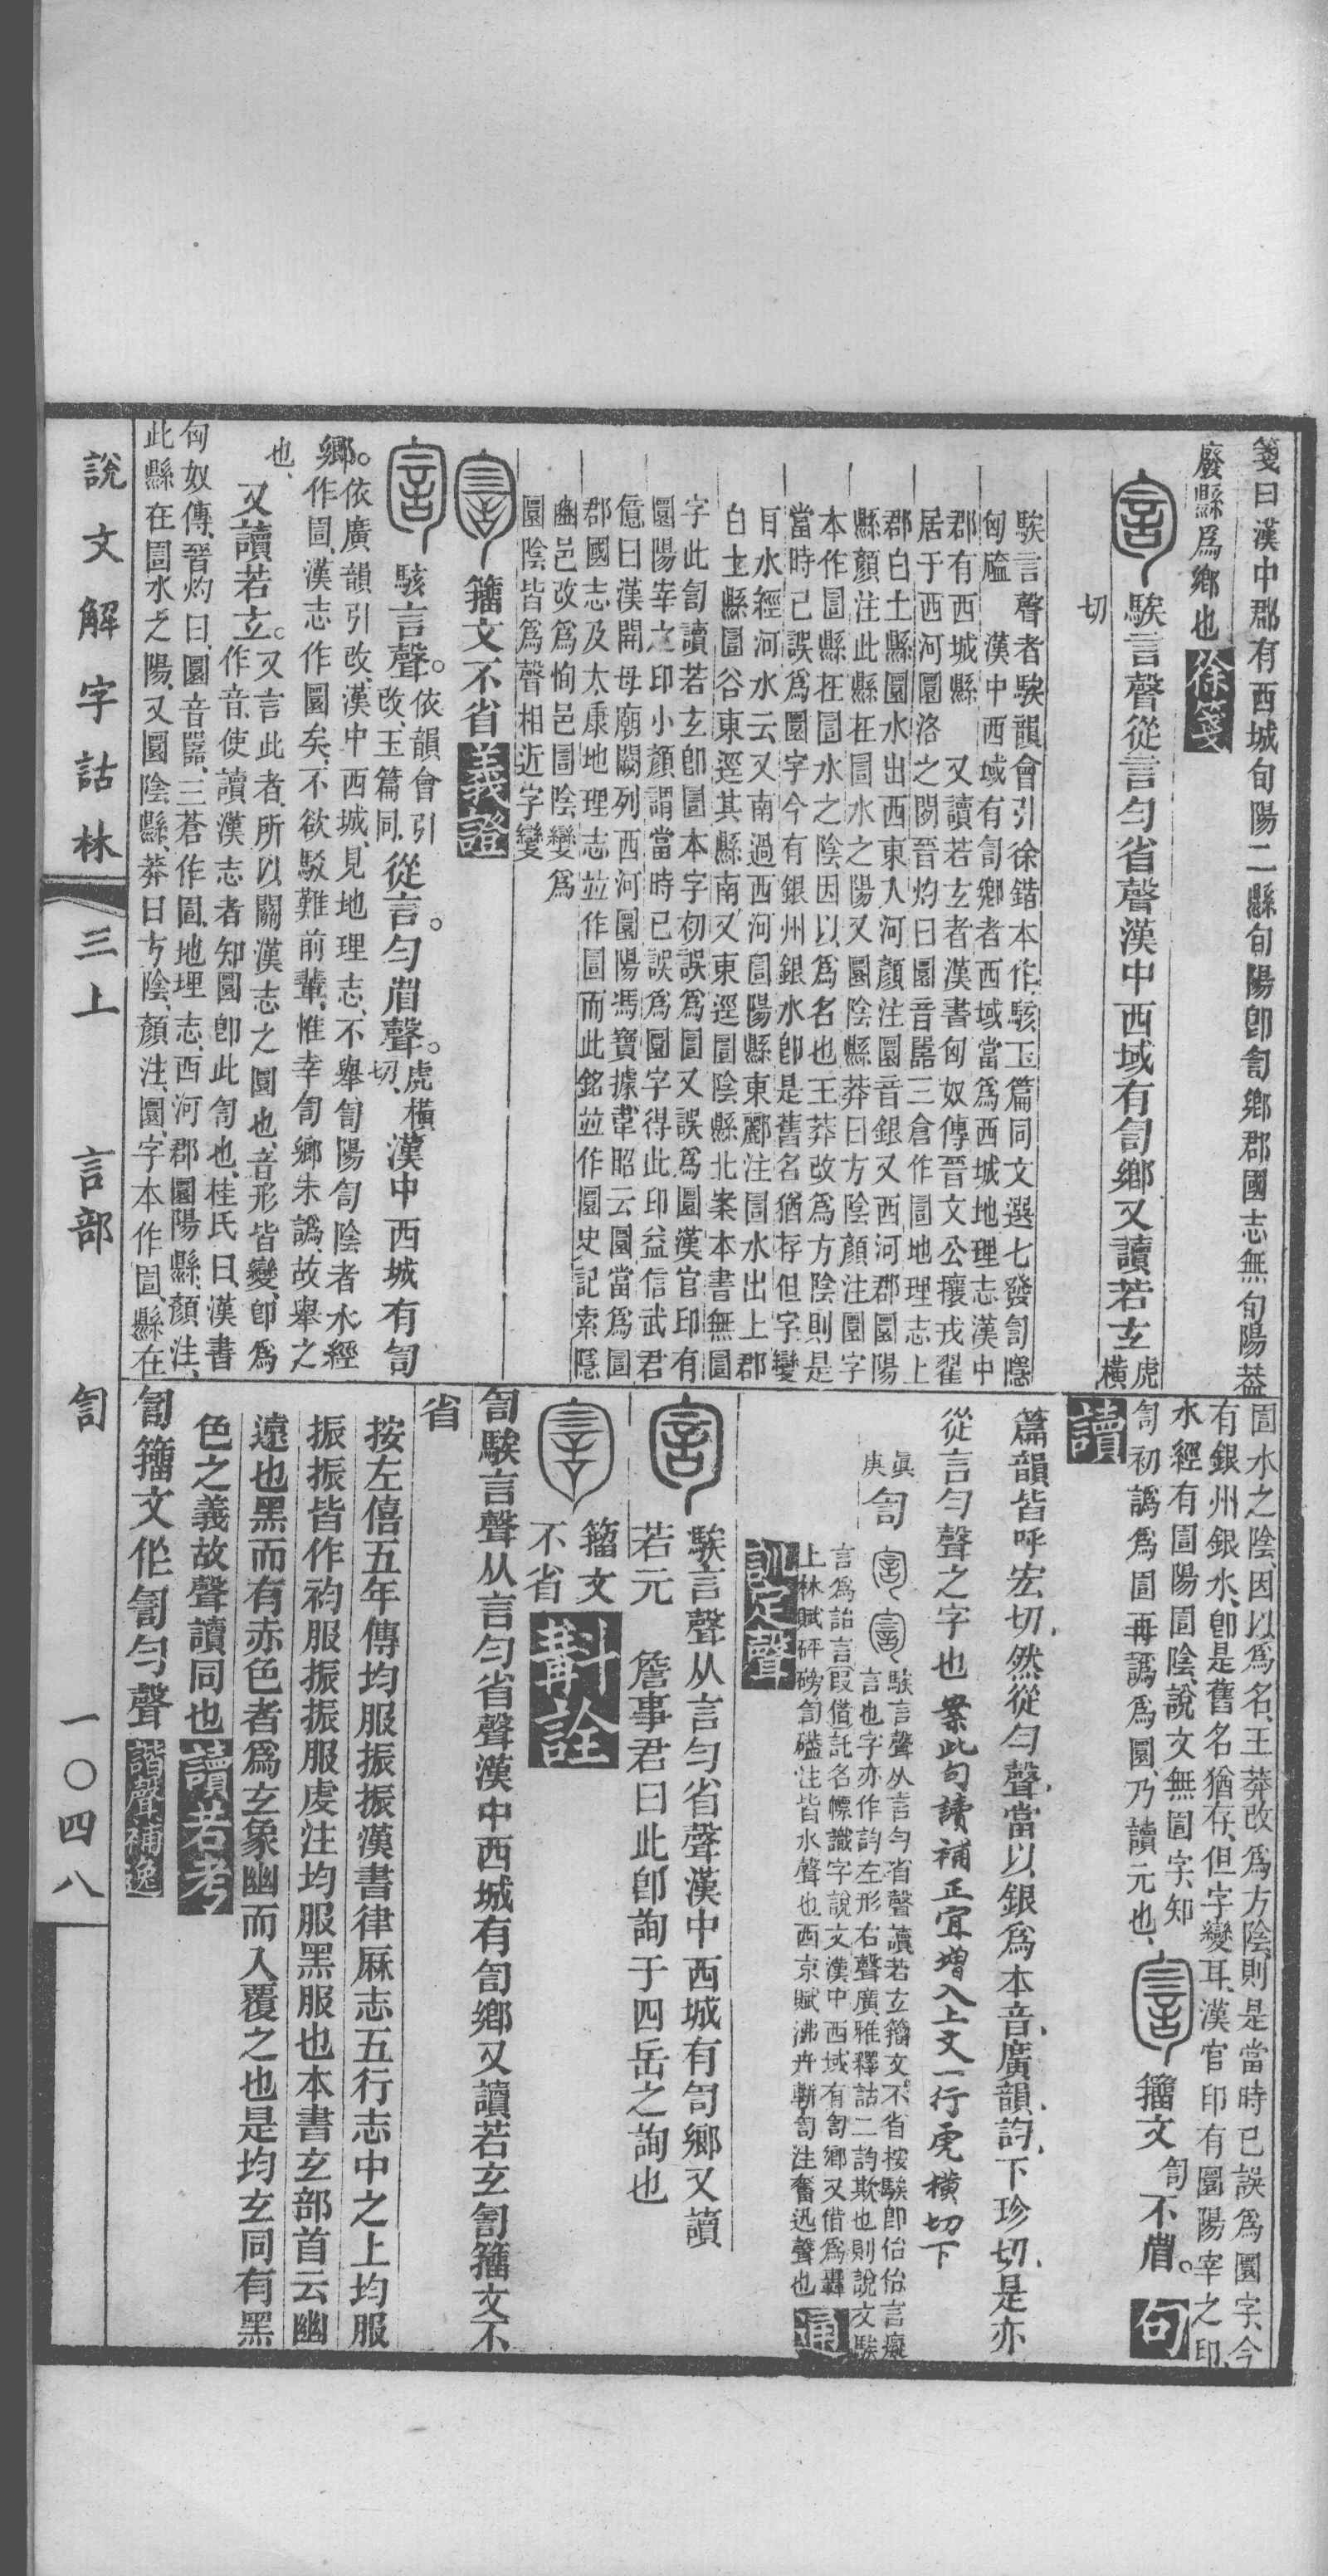 箋曰漢中郡有西城旬陽二縣旬陽卽訇鄉郡國志無旬陽蓋
廢縣爲鄉也徐箋
騃言聲從言勻省聲漢中西域有訇鄉又讀若玄虎橫
切
騃言聲者騃韻會引徐鍇本作駭玉篇同文選七發訇隱
匈礚 漢中西域有訇鄉者西域當爲西城地理志漢中
郡有西城縣 又讀若玄者漢書匈奴傳晉文公攘戎翟
居于西河圜洛之閒晉灼曰圜音嚚三倉作圁地理志上
郡白土縣圜水出西東入河顏注圜音銀又西河郡圜陽
縣顏注此縣在圁水之陽又圜陰縣莽曰方陰顏注圜字
本作圁縣在圁水之陰因以爲名也王莽改爲方陰則是
當時已誤爲圜字今有銀州銀水卽是舊名猶存但字變
耳水經河水云又南過西河圁陽縣東酈注圁水出上郡
白土縣圁谷東逕其縣南又東逕圁陰縣北案本書無圁
字此訇讀若玄卽圁本字初誤爲圁又誤爲圜漢官印有
圜陽宰之印小顏謂當時已誤爲圜字得此印益信武君
億曰漢開母廟闕列西河圜陽馮寶據韋昭云圜當爲圁
郡國志及太康地理志並作圁而此銘並作圜史記索隱
豳邑改爲恂邑圁陰變爲
圜陰皆爲聲相近字變
籒文不省義證
駭言聲。依韻會引改、玉篇同、從言。勻省聲。虎橫切、漢中西城有訇
鄉。依廣韻引改、漢中西城、見地理志、不舉訇陽訇陰者、水經
作圁、漢志作圜矣、不欲駁難前輩、惟幸訇鄉未譌、故舉之
也、又讀若玄。又言此者、所以關漢志之圜也、音形皆變、卽爲
作音、使讀漢志者知圜卽此訇也、桂氏曰、漢書
匈奴傳、晉灼曰、圜音嚚、三蒼作圁、地理志、西河郡圜陽縣、顏注、
此縣在圁水之陽、又圜陰縣、莽曰方陰、顏注、圜字本作圁、縣在
圁水之陰、因以爲名、王莽改爲方陰、則是當時已誤爲圜字、今
有銀州銀水、卽是舊名猶存、但字變耳、漢官印有圜陽宰之印、
水經有圁陽圁陰、說文無圁字、知
訇初譌爲圁、再譌爲圜、乃讀元也、籒文訇不省。句
讀
篇韻皆呼宏切、然從勻聲、當以銀爲本音、廣韻、訇、下珍切、是亦
從言勻聲之字也 案此句讀補正宜增入上文一行虎橫切下
眞庚
訇 騃言聲从言勻省聲讀若玄籒文不省按騃卽佁佁言癡
言也字亦作訇左形右聲廣雅釋詁二訇欺也則說文騃
言爲詒言叚借託名幖識字說文漢中西域有訇鄉又借爲轟
上林賦砰磅訇礚注皆水聲也西京賦沸卉軿訇注奮迅聲也通
訓定聲
騃言聲从言勻省聲漢中西城有訇鄉又讀
若元 詹事君曰此卽詢于四岳之詢也
籒文不省斠詮
訇騃言聲从言勻省聲漢中西城有訇鄉又讀若玄訇籒文不
省
按左僖五年傳均服振振漢書律厤志五行志中之上均服
振振皆作袀服振振服虔注均服黑服也本書玄部首云幽
遠也黑而有赤色者爲玄象幽而入覆之也是均玄同有黑
色之義故聲讀同也讀若考
訇籒文作訇勻聲諧聲補逸
說文解字詁林 三上 言部 訇 一〇四八